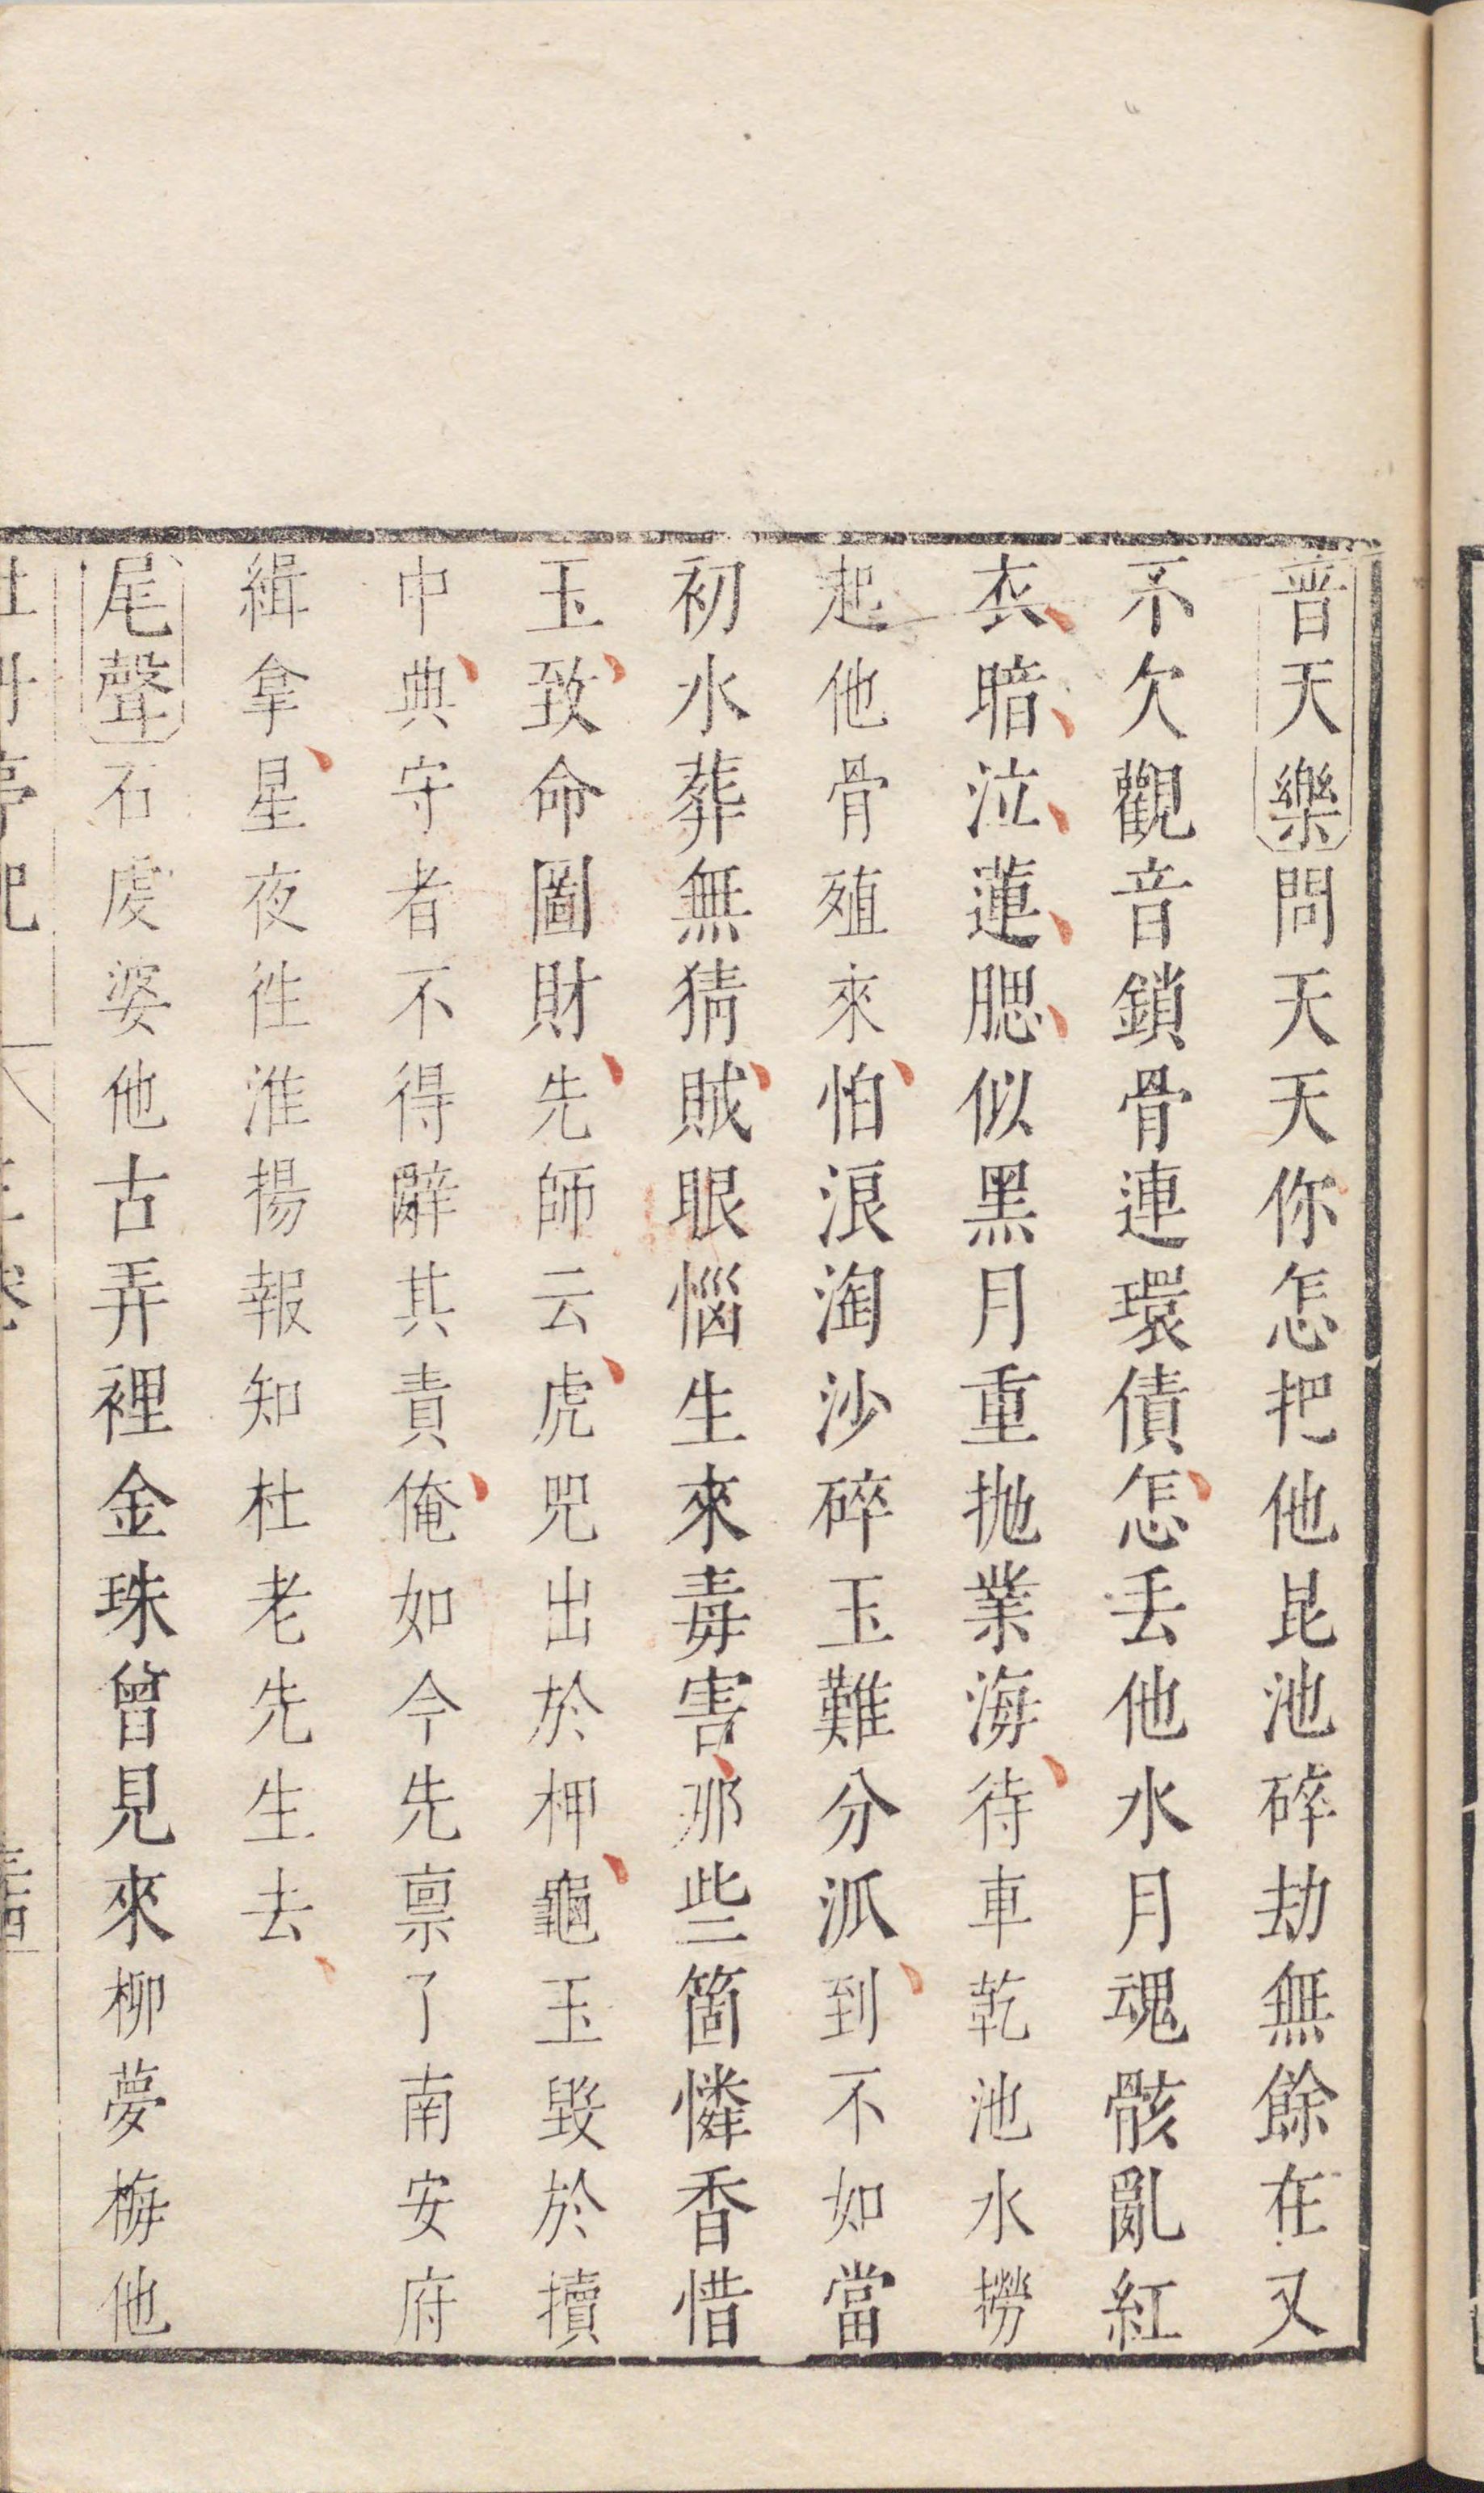 普天樂問天天你怎把他昆池碎劫無餘在又
不欠觀音鎖骨連環債怎丢他水月魂骸亂紅
衣暗泣蓮腮似黑月重拋業海待車乾池水撈
起他骨殖來怕浪淘沙碎玉難分派到不如當
初水葬無猜賊眼惱生來毒害那些箇憐香惜
玉致命圖財先師云虎兕出於柙龜玉毀於犢
中典守者不得辭其責俺如今先禀了南安府
緝拿星夜徃淮揚報知杜老先生去
尾聲石虔婆他古弄裡金珠曾見來柳夢梅他